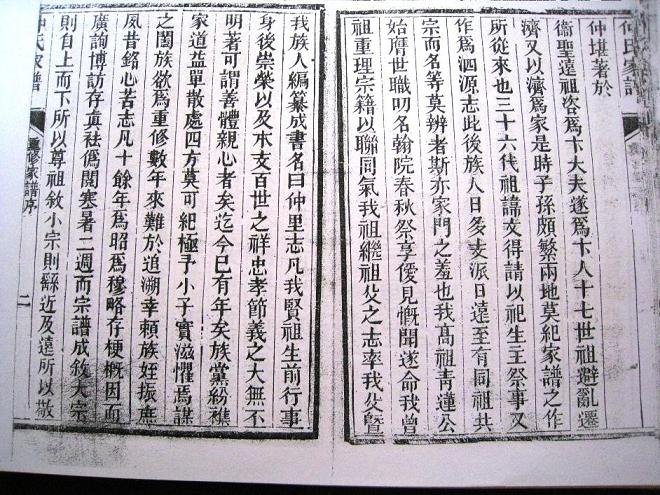 仲氏家譜
仲堪著於
衞聖遠祖咨為卞大夫遂為卞人十七世祖辟亂遷
濟又以濟為家是時子孫頗繁兩地莫紀家譜之作
所從來也三十六代祖諱文得請以祀生王祭事又
作為泗源志此後族人日多支派日遠至有同祖共
宗而名等莫辨者斯亦家門之羞也我高祖青蓮公
始膺世職叨名翰院春秋祭享僾見愾聞遂命我曾
祖重理宗籍以聯同氣我祖繼祖父之志率我父暨
我族人編纂成書名曰仲里志凡我賢祖生前行事
身後崇榮以及本支百世之祥忠孝節義之大無不
明著可謂善體親心者矣迄今已有年矣族黨紛樵
家道益單散處四方莫可紀極予小子實滋懼焉謀
之闔族欲為重修數年來難於追溯幸賴族姪振廡
夙昔銘心苦志凡十餘年為昭為穆略存梗概因而
廣詢博訪存真袪僞閱寒暑二週而宗譜成敘大宗
則自上而下所以尊祖敘小宗則繇近及遠所以敬
仲氏家譜
重修家譜序
二